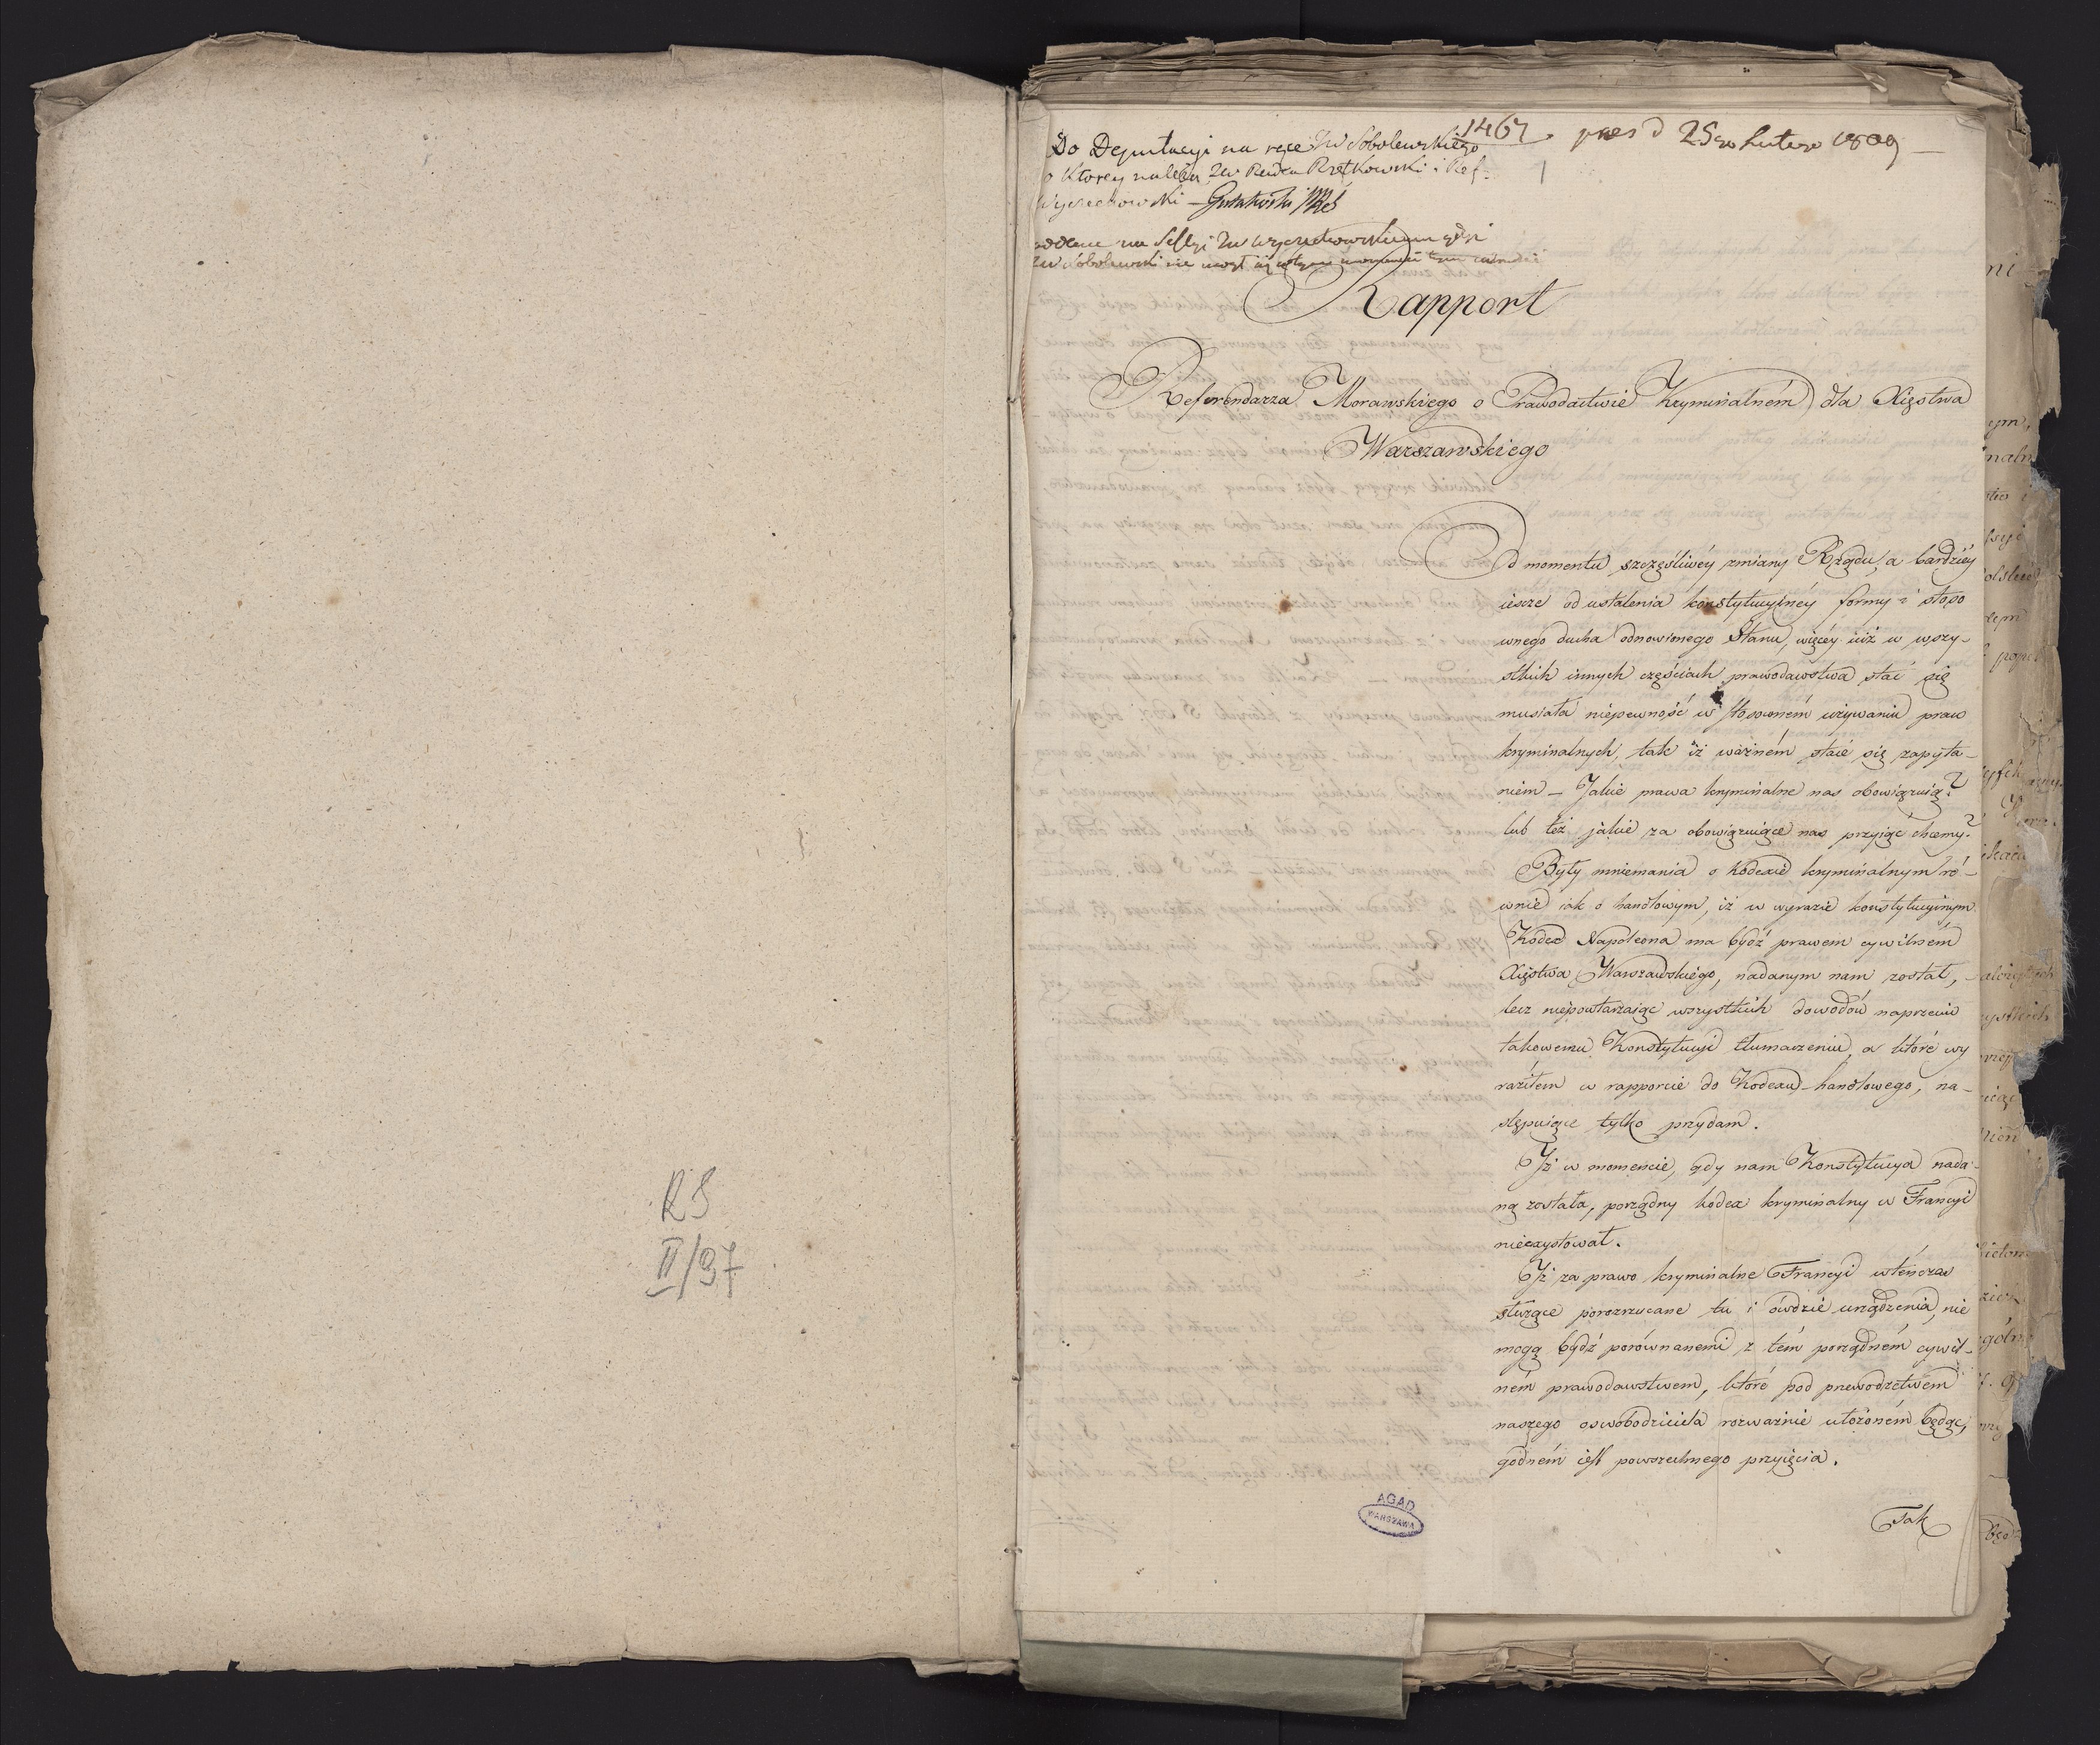 RS
II/97
1467. pres d 25go Lutego 1809
1
Do Deputacyi na ręce JW Sobolewskiego
o ktorey należą JW Radca Rzętkowski i Ref.
Wyczechowski — Gutakowski
oddane na Sessyi JW Wyczechowskiemu gdyż
JW Sobolewski nie mógł
Rapport
Referendarza Morawskiego o Prawodactwie Kryminalném dla Xięstwa
Warszawskiego
Od momentu szczęśliwéy zmiany Rządu, a bardziéy
ieszcze od ustalenia konstytucyinéy formy i stoso
wnego ducha odnowionego Stanu, więcéy iúż w wszy-
stkich innych częściach prawodawstwa stać się
musiała niepewność w stósowném używaniu praw
kryminalnych, tak iż ważném staie się zapyta-
niem — Jakie prawa kryminalne nas obowiązuią?
lub też jakie za obowiązuiące nas przyiąć chcemy?
Były mniemania o Kodexie kryminalnym ró-
wnie iak o handlowym, iż w wyrazie konstytucyinym
Kodex Napoleona ma bydź prawem cywilném
Xięstwa Warszawskiego, nadanym nam został,
lecz niepowtarzaiąc wszystkich dowodów naprzeciw
takowemu Konstytucyi tłumaczeniu, a które wy
raziłem w rapporcie do Kodexu handlowego, na-
stępuiące tylko przydam.
Iż w momencie, gdy nam Konstytucya nada-
ną została, porządny kodex kryminalny w Francyi
nieexystował.
Iż za prawo kryminalne Francyi wtenczas
służące porozrzucane tu i ówdzie urządzenia, nie
mogą bydź porównanemi z tém porządném cywil-
ném prawodawstwem, które pod przewodzctwem
naszego oswobodziciela rozważnie ułożoném będąc,
godném iest powszechnego przyięcia.
Tak
AGAD
WARSZAWA